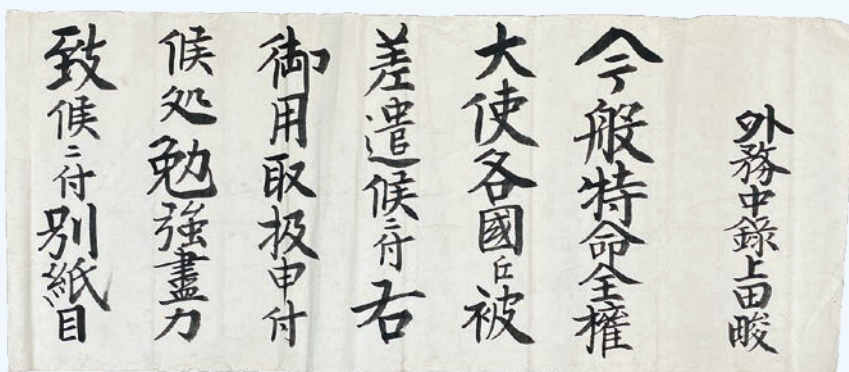 外務中録上田畯
今般特命全権
大使各國江被
差遣候ニ付右
御用取扱申付
候処勉強盡力
致候ニ付別紙目